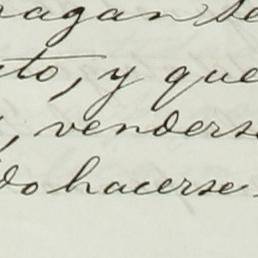 hagan se
to, y que
, venderse
do hacerse